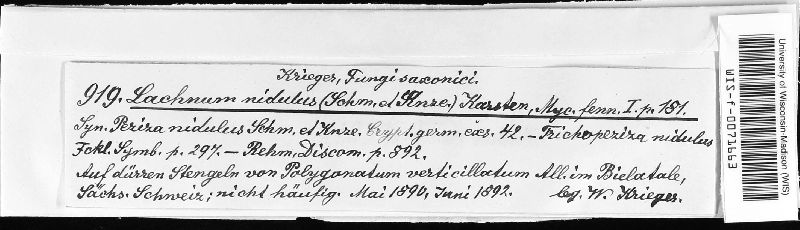 Krieger, Fungi saxonici.
919. Lachnum nidulus (Schm. et Knze.) Karsten, Myc. fenn. I. p. 181.
Syn. Peziza nidulus Schm. et Knze. Crypt. germ. exs. 42. – Trichopeziza nidulus
Fckl. Symb. p. 297. – Rehm, Discom. p. 892.
Auf dürren Stengeln von Polygonatum verticillatum All. im Bielatale,
Sächs. Schweiz; nicht häufig. Mai 1890, Juni 1892. leg. W. Krieger.
WIS-f-0071663
University of Wisconsin Madison (WIS)